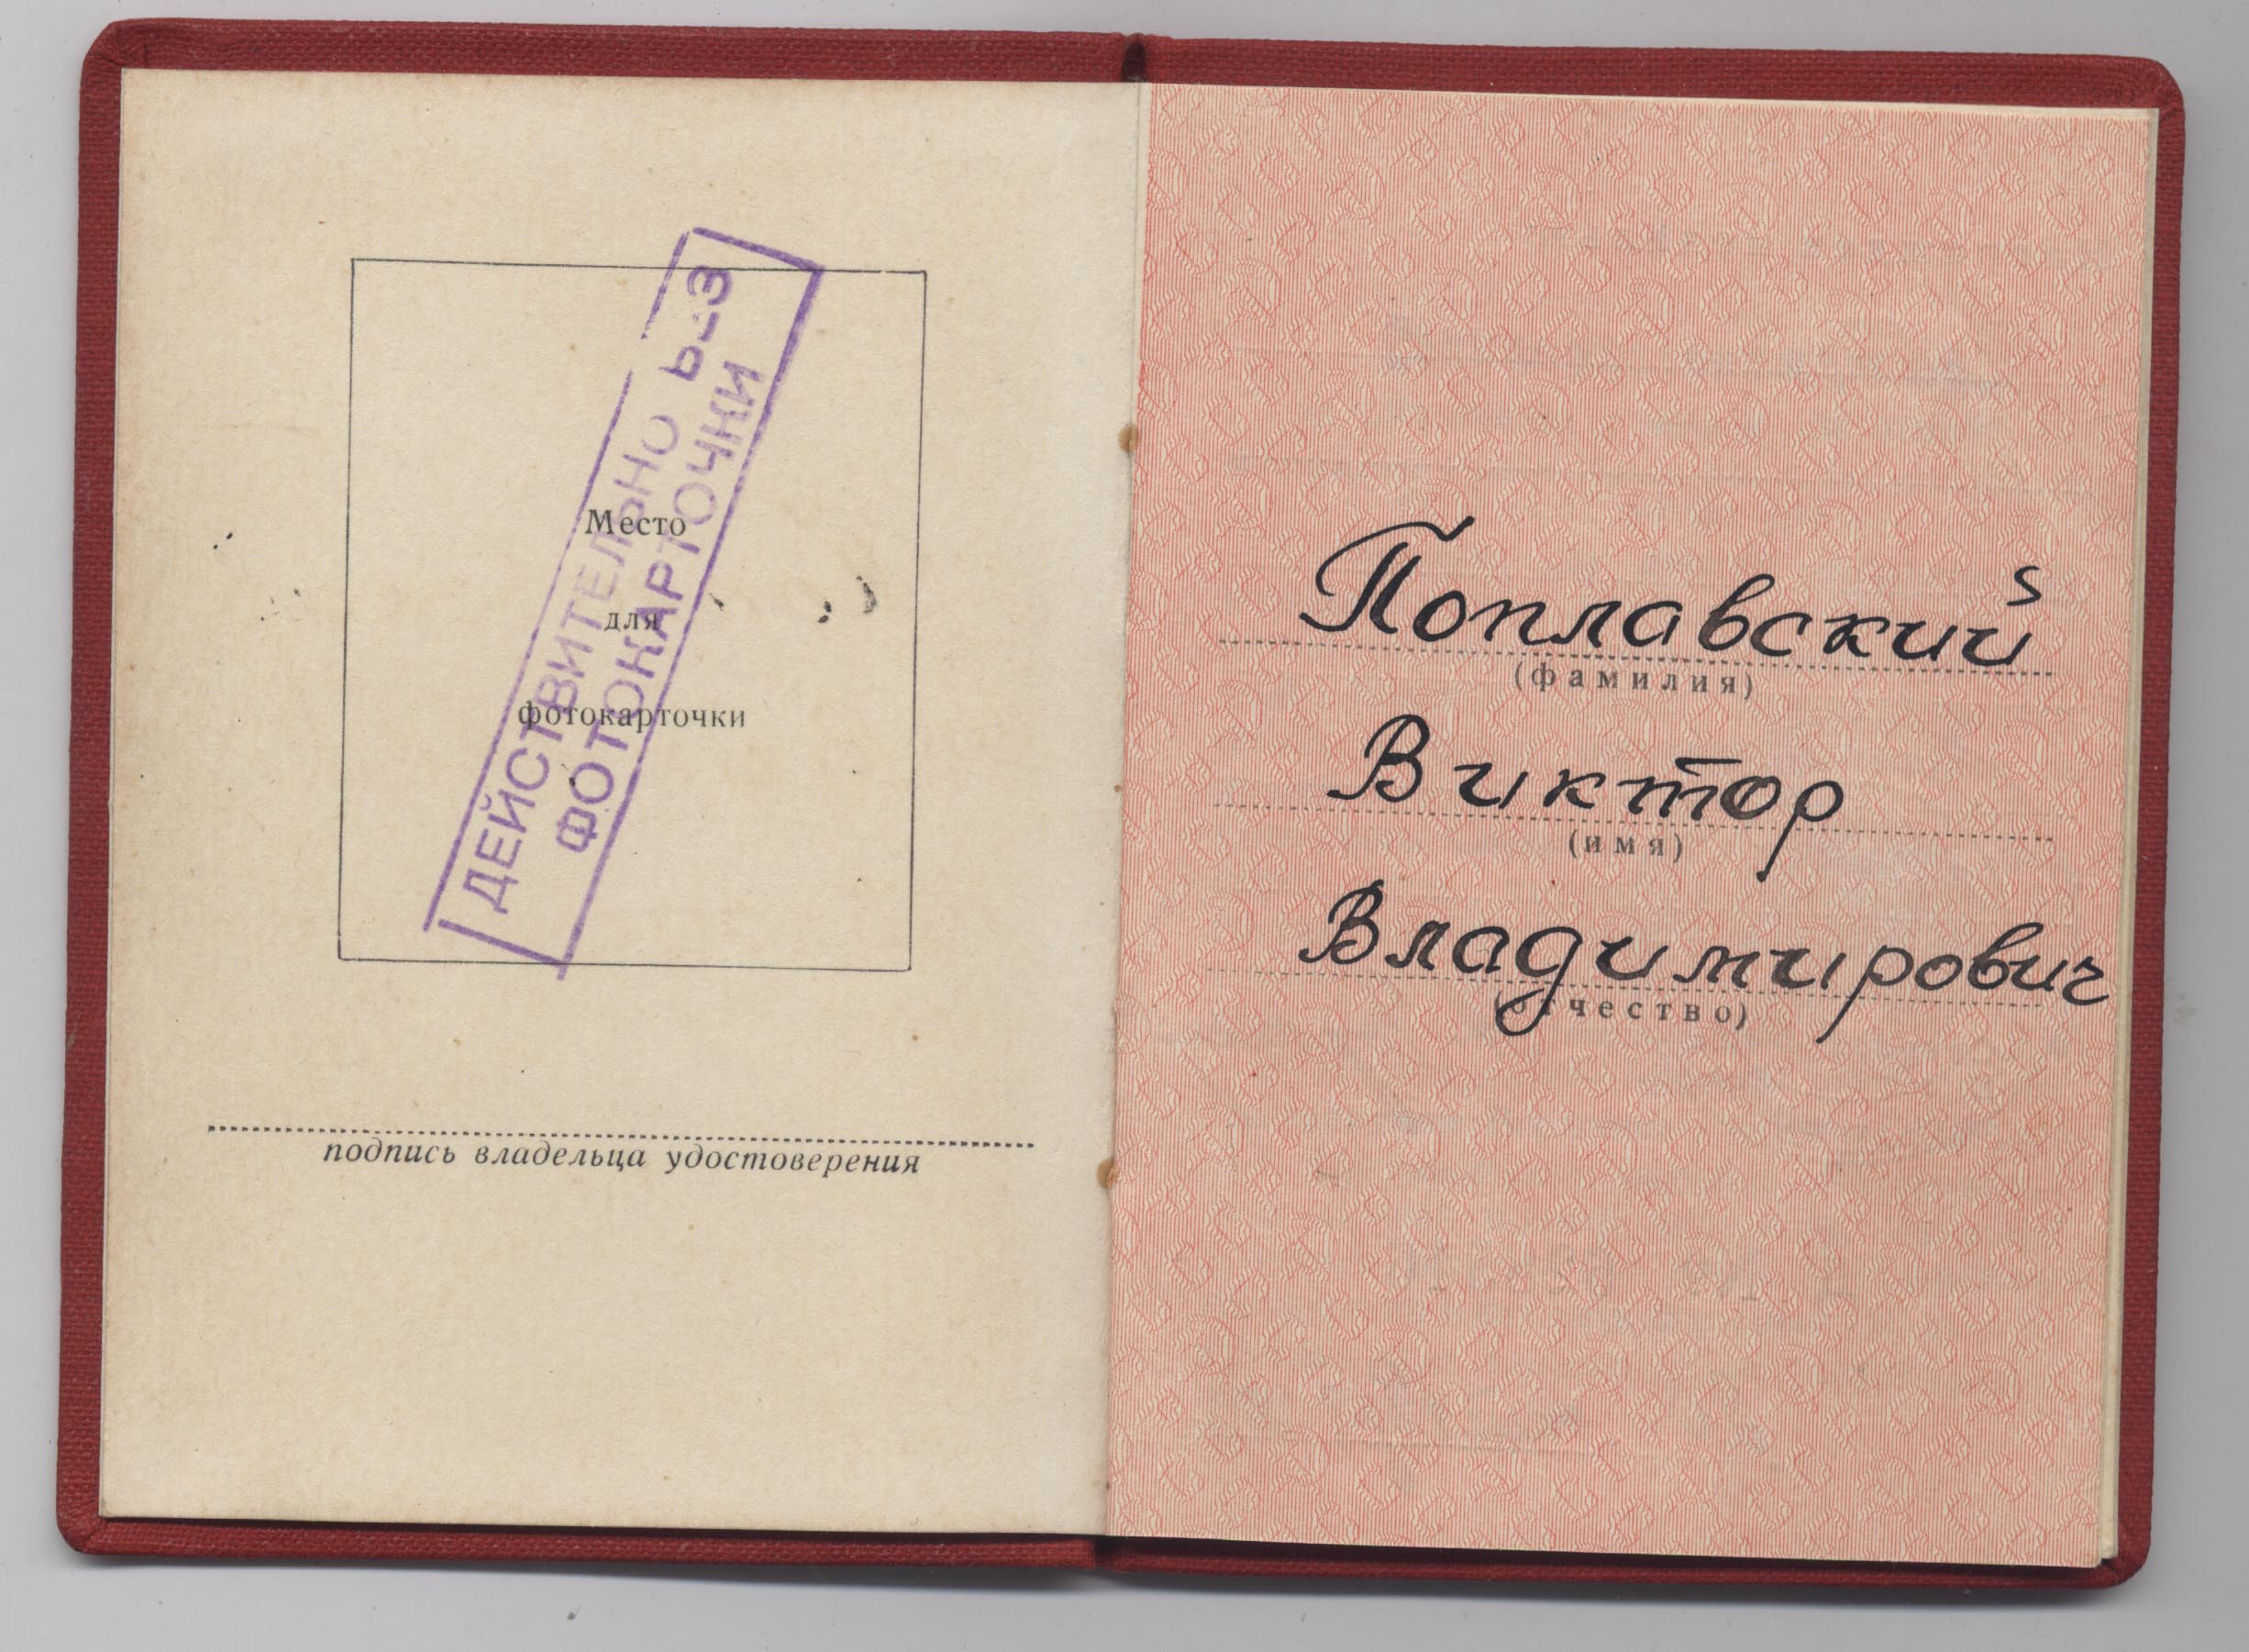 Место
для
фотокарточки
ДЕЙСТВИТЕЛЬНО
ФОТОКАРТОЧКИ
подпись владельца удостоверения
Поплавский
(фамилия)
Виктор
(имя)
Владимирович
(отчество)